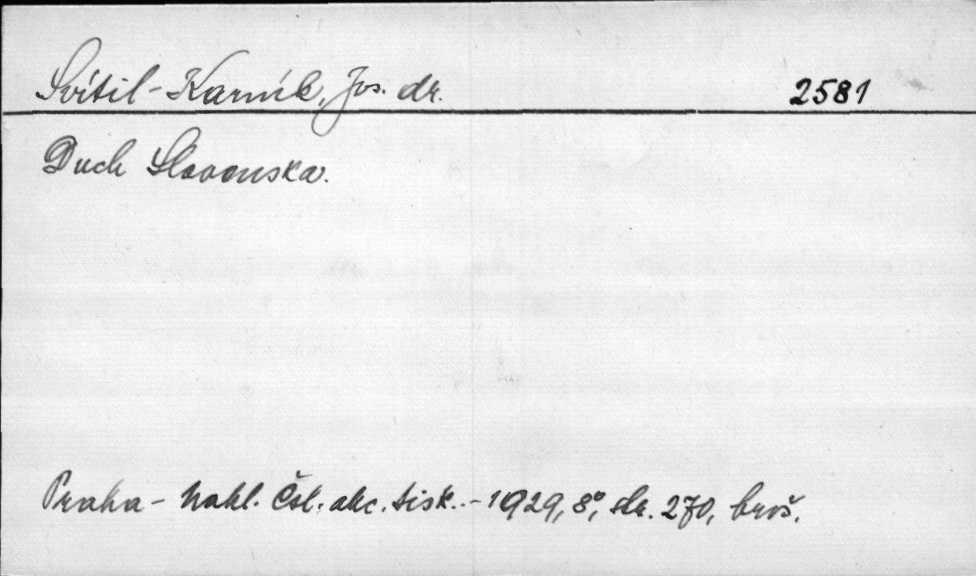 Svítil-Karník, Jos. dr. 2581
Duch Slovenska.
Praha - Nakl. Čsl. akc. tisk. - 1929, 8°, str. 270, brož.